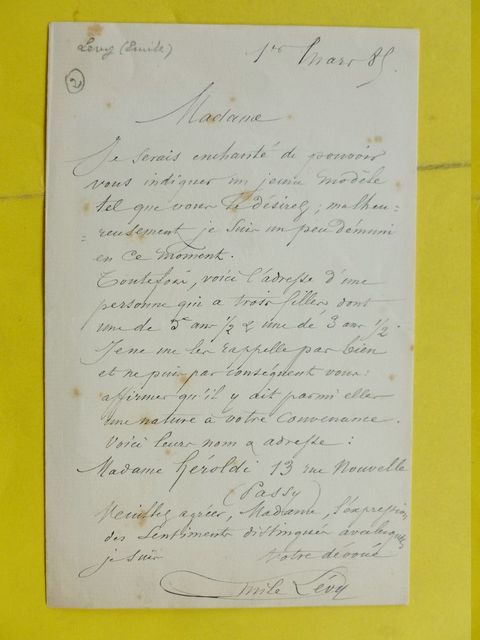 Levy (Emile)
2
1er Mars 85.
Madame
Je serais enchanté de pouvoir
vous indiquer un jeune modèle
tel que vous le désirez ; malheu-
-reusement je suis un peu démuni
en ce moment.
Toutefois, voici l'adresse d'une
personne qui a trois filles dont
une de 5 ans 1/2 & une de 3 ans 1/2.
Je ne me les rappelle pas bien
et ne puis par conséquent vous
affirmer qu'il y ait parmi elles
une nature à votre convenance.
Voici leurs nom & adresse :
Madame Héroldi 13 rue Nouvelle
(Passy)
Veuillez agréer, Madame, l'expression
des sentiments distingués avec lesquels
je suis votre dévoué
Emile Lévy